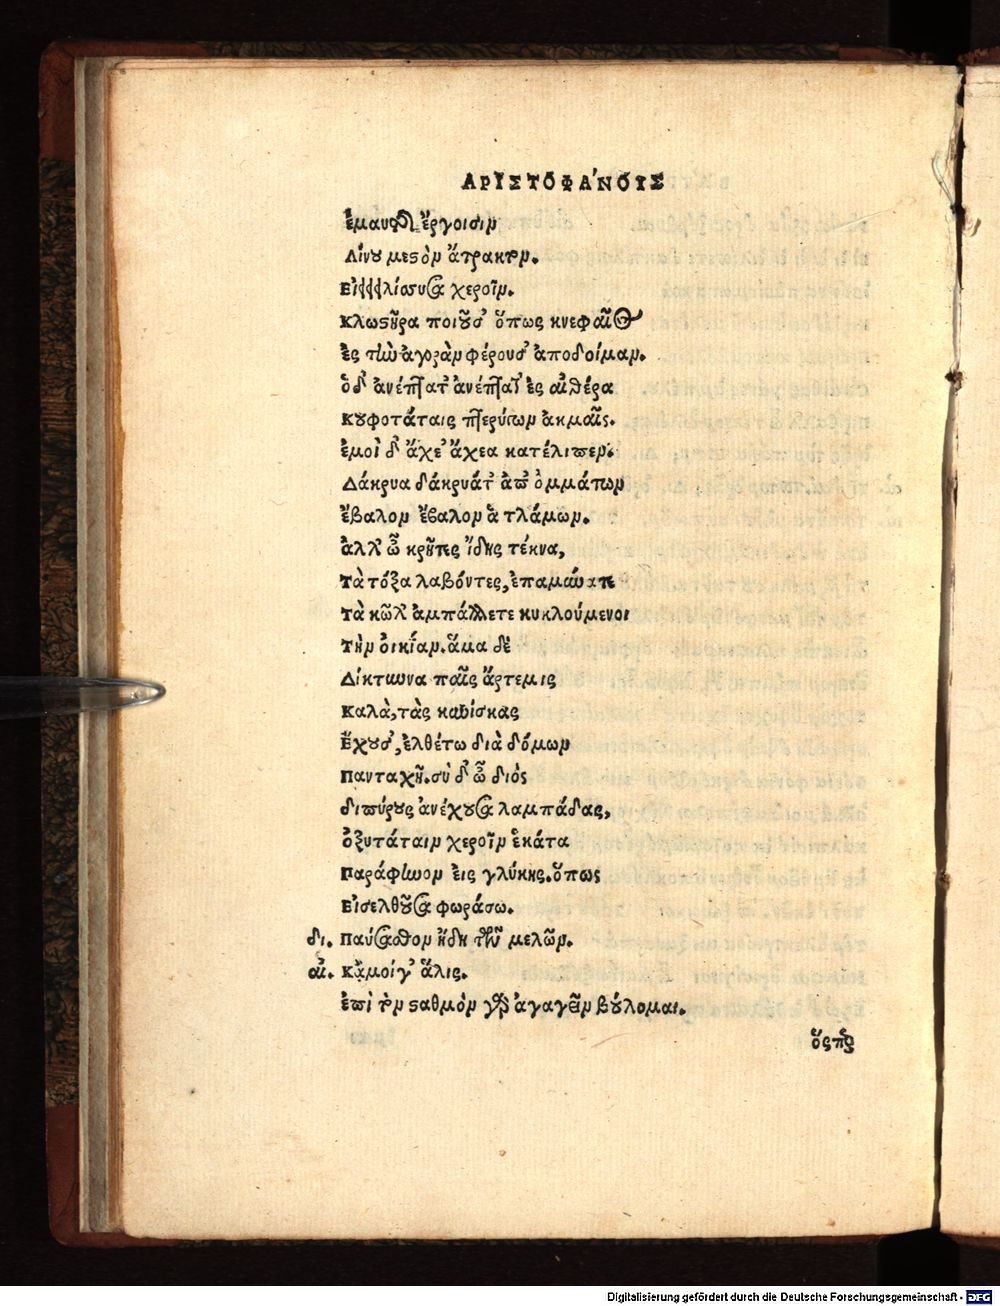 ΑΡΙΣΤΟΦΆΝΟΥΣ
ἐμαυτῆς ἔργοισιν
Λίνου μεστὸν ἄτρακτον.
Εἰλίσσουσα χεροῖν.
Κλωστῆρα ποιοῦσ' ὅπως κνεφαῖος
ἐς τὴν ἀγορὰν φέρουσ' ἀποδοίμαν.
ὁδ' ἀνέπτατ' ἀνέπτατ' ἐς αἰθέρα
Κουφοτάταις πτερύγων ἀκμαῖς.
ἐμοὶ δ' ἄχε' ἄχεα κατέλιπεν.
Δάκρυα δάκρυάτ' ἀπ' ὀμμάτων
ἔβαλον ἔβαλον ἁ τλάμων.
ἀλλ' ὦ κρῆτες ἴδης τέκνα,
Τὰ τόξα λαβόντες, ἐπαμύνατε
Τὰ κῶλ' ἀμπάλλετε κυκλούμενοι
Τὴν οἰκίαν. ἅμα δὲ
Δίκτυννα παῖς ἄρτεμις
Καλὰ, τὰς κυνίσκας
Ἔχουσ', ἐλθέτω διὰ δόμων
Πανταχῆ. σὺ δ' ὦ διός
διπύρους ἀνέχουσα λαμπάδας,
ὀξυτάταιν χεροῖν ἑκάτα
Παράφηνον εἰς γλύκης. ὅπως
Εἰσελθοῦσα φωράσω.
δι. Παύσασθον ἤδη τῶν μελῶν.
αἰ. Κἄμοίγ' ἅλις.
ἐπὶ τὸν σταθμὸν γὰρ ἀγαγεῖν βούλομαι.
ὅσπερ
Digitalisierung gefördert durch die Deutsche Forschungsgemeinschaft - DFG